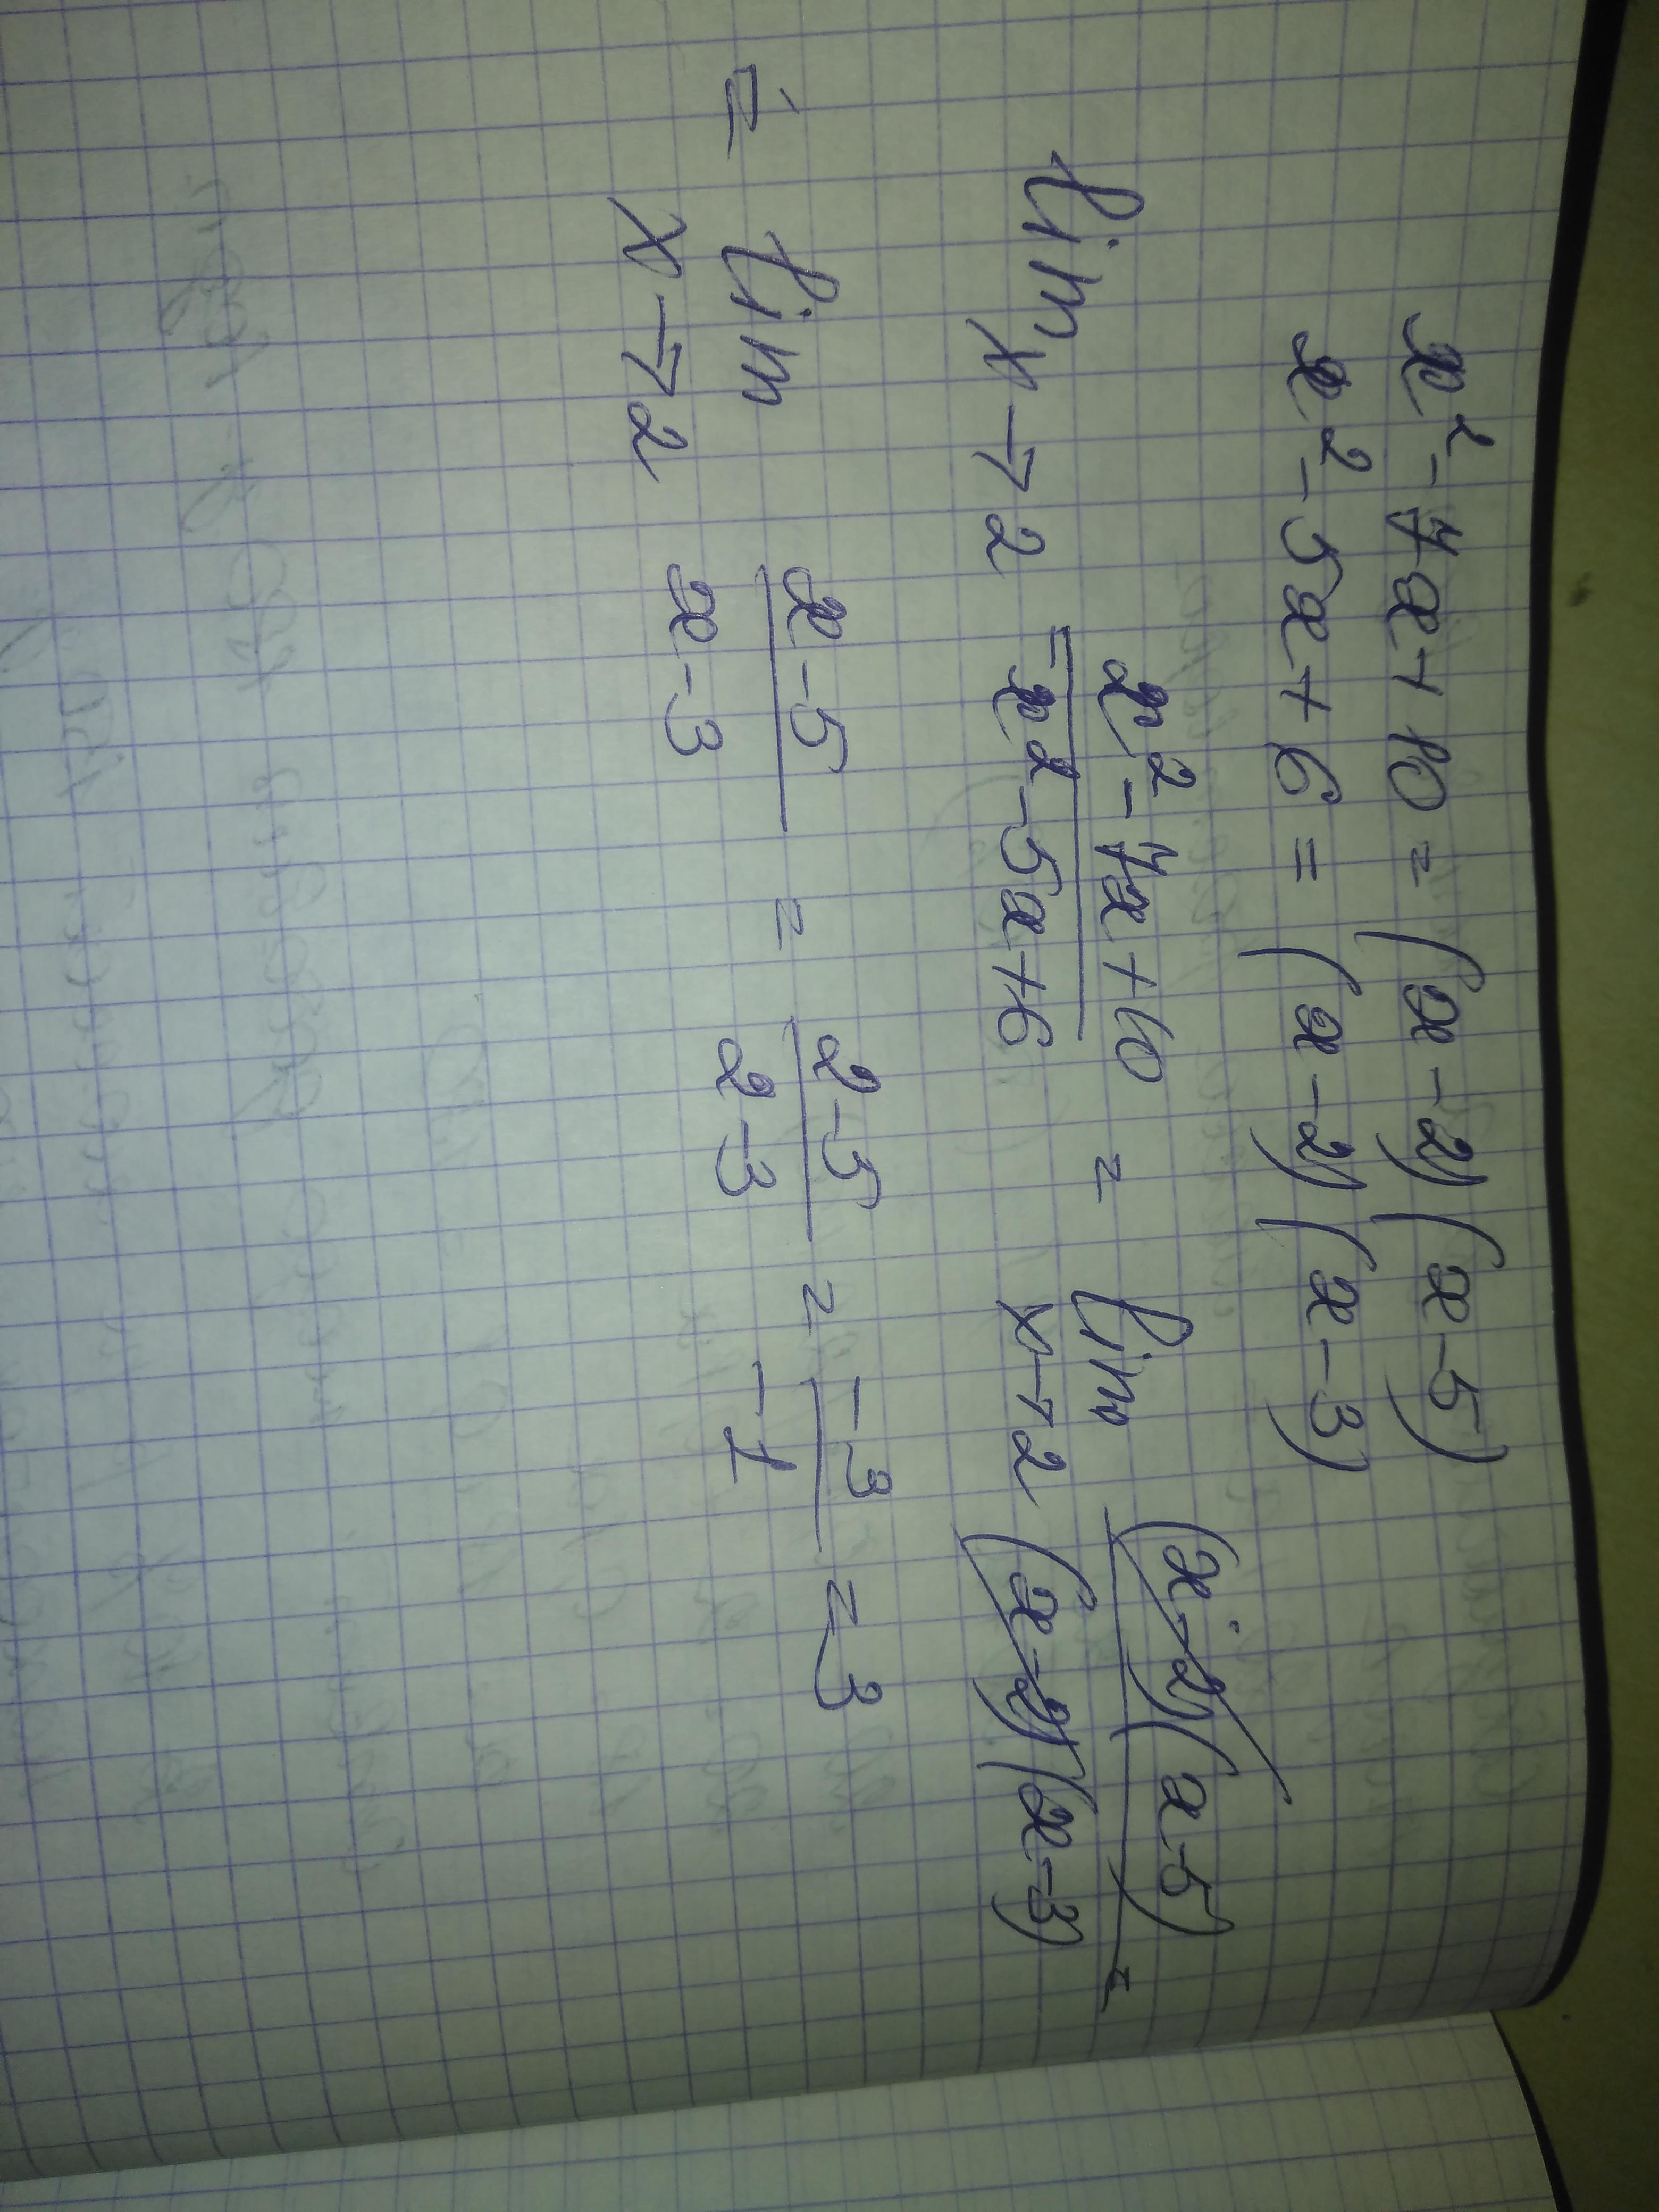 x² - 7x + 10 = (x - 2)(x - 5)
x² - 5x + 6 = (x - 2)(x - 3)
lim x→2 = (x² - 7x + 10)/(x² - 5x + 6) = lim x→2 (x - 2)(x - 5)/(x - 2)(x - 3) =
= lim x→2 (x - 5)/(x - 3) = (2 - 5)/(2 - 3) = (-3)/(-1) = 3